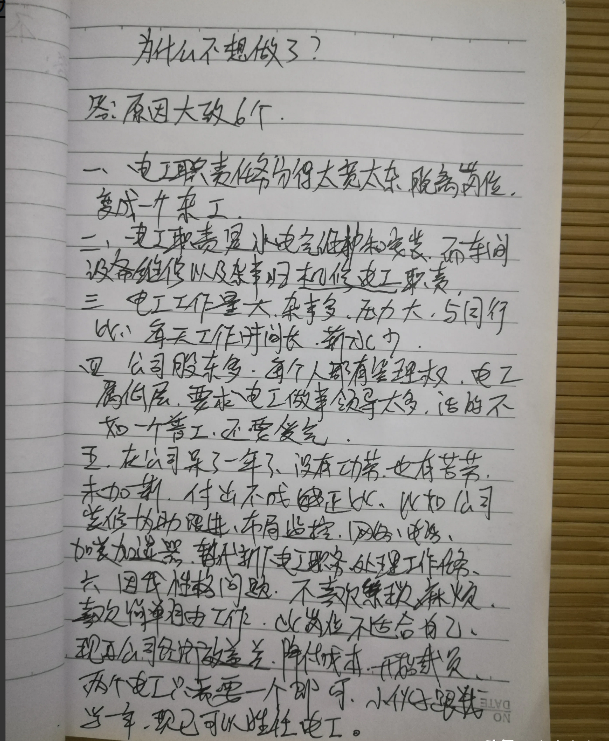 为什么不想做了？
答:原因大致6个.
一、电工职责任务分得太宽太杂.脱离岗位.
变成一个杂工.
二、电工职责是水电气维护和安装.而车间
设备维修以及杂事归机修电工职责,
三 电工工作量大.杂事多.压力大.与同行
比、每天工作时间长.薪水少.
四 公司股东多.每个人都有管理权.电工
属低层.要求电工做事领导太多.活的不
如一个普工.还要受气.
五.在公司呆了一年了、没有功劳.也有苦劳.
未加薪.付出不成正比.比如公司
装修协助跟进.布局监控.网络、电话、
加装加速器.替代新厂电工职务处理工作任务、
六 因我性格问题.不喜欢繁琐、麻烦.
喜欢简单自由工作.此岗位不适合自己、
现在公司经济效益差.降低成本.开始裁员.
两个电工只需要一个即可.小伙子跟我
半年.现已可以胜任电工。
DATE
NO